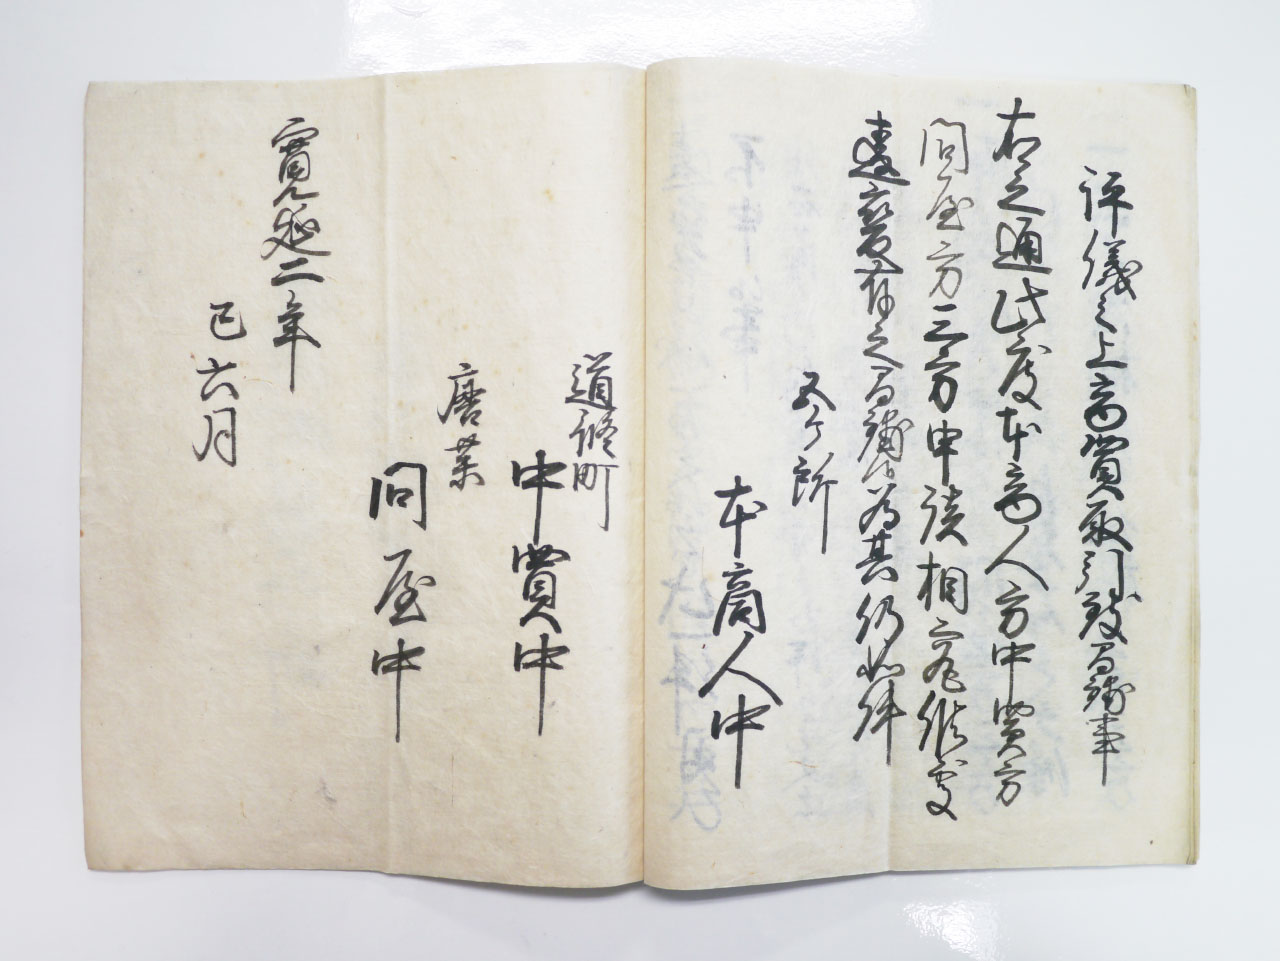 評儀之上商賣取引致間鋪事
右之通此度本商人方中買方
問屋方三方申談相究候処
違変有之間鋪候為其仍如件
五ヶ所
本商人中
道修町
中買中
唐薬
問屋中
寛延二年
巳六月